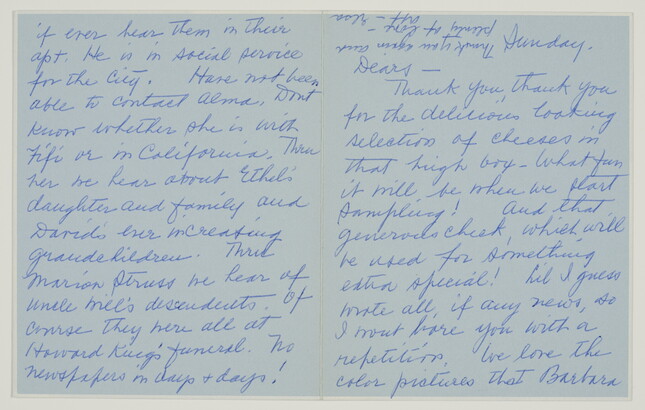 Sunday.
Dears —
Thank you, thank you
for the delicious looking
selection of cheeses in
that huge box – What fun
it will be when we start
sampling! And that
generous check, which will
be used for something
extra special! Lil I guess
wrote all, if any news, so
I wont bore you with a
repetition. We love the
color pictures that Barbara
Thank you again and
plenty of love –
if ever hear them in their
apt. He is in social service
for the City. Have not been
able to contact Alma. Dont
know whether she is with
Fifi or in California. Thru
her we hear about Ethel's
daughter and family and
David's ever increasing
grandchildren. Thru
Marion Struss we hear of
Uncle Will's descendents. Of
course they were all at
Howard King's funeral. No
newspapers in days & days!